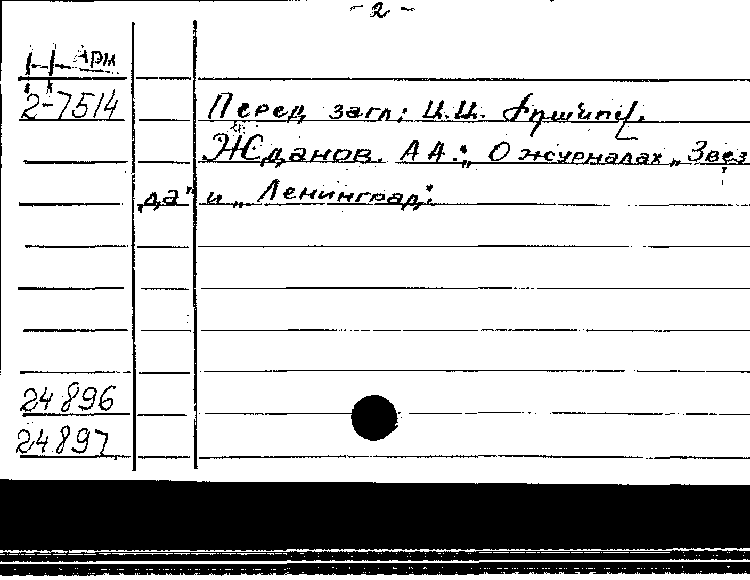 - 2 -
Арм
2-7514 Перед загл: Ա.Ա. Ժդանով.
Жданов. А А.: „О журналах „Звез
да" и „Ленинград".
24896
24897